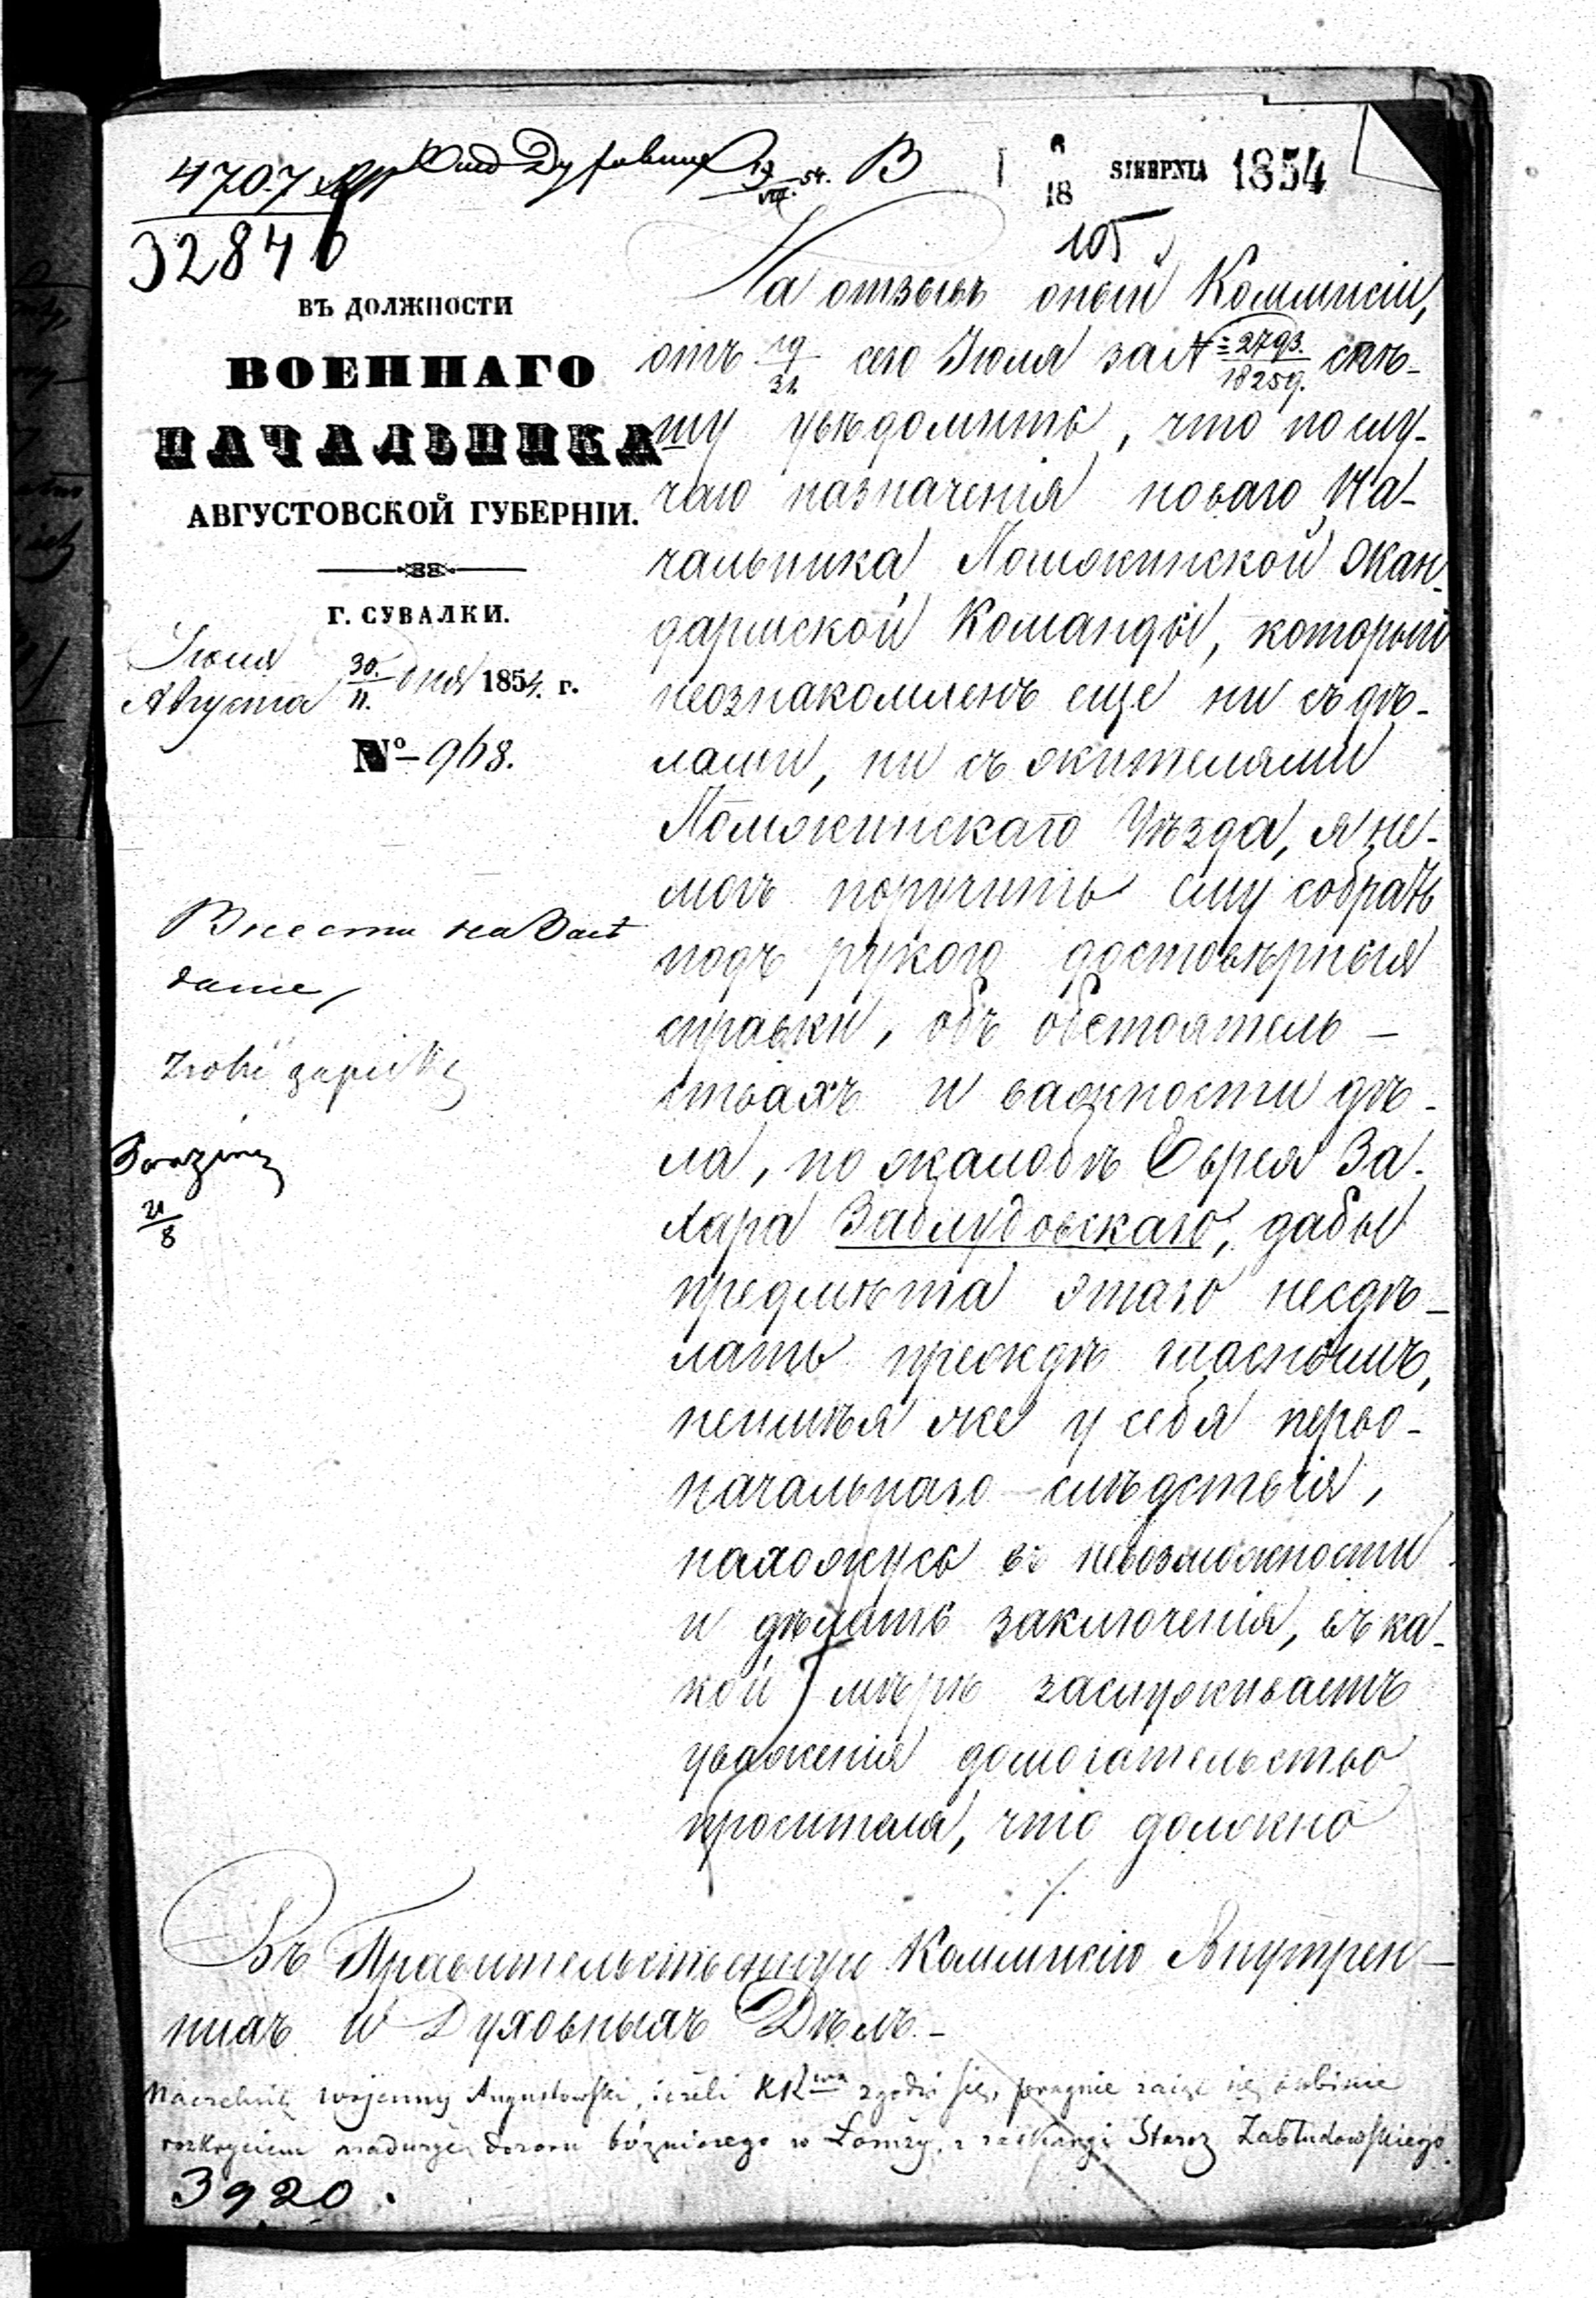 4707
32846
В
6
18 SIERPNIA 1854
105
ВЪ ДОЛЖНОСТИ
ВОЕННАГО
НАЧАЛЬНИКА
АВГУСТОВСКОЙ ГУБЕРНІИ.
Г. СУВАЛКИ.
Іюля 30.
Августа 11. дня 1854. г.
№ 968.
Внести на Засѣ
даніе
Zrobić zapiskę
21/8
На отзывъ оной Коммисіи,
отъ 19/31 сего Іюля за № 2793./18259. спѣ-
шу увѣдомить, что по слу-
чаю назначенія новаго На-
чальника Ломжинской Жан-
дармской Команды, который
неознакомленъ еще ни съ дѣ-
лами, ни съ жителями
Ломжинскаго Уѣзда, я не-
могъ поручить ему собрать
подъ рукою достовѣрныя
справки, объ обстоятель-
ствахъ и важности дѣ-
ла, по жалобѣ Еврея За-
хара Заблудовскаго, дабы
предмѣта этаго несдѣ-
лать прежде гласнымъ,
неимѣя же у себя перво-
начальнаго слѣдствія,
нахожусь въ невозможности
и дѣлать заключенія, въ ка-
кой мѣрѣ заслуживаетъ
уваженія домогательство
просителя, что должно
./.
Въ Правительственную Коммисію Внутрен-
нихъ и Духовныхъ Дѣлъ.-
Naczelnik wojenny Augustowski, jeżeli KR zgodzi się, pragnie zająć się
rozkryciem nadużyć dozoru bóżniczego w Łomży, z zaskargi Staroz Zabłudowskiego
3920.